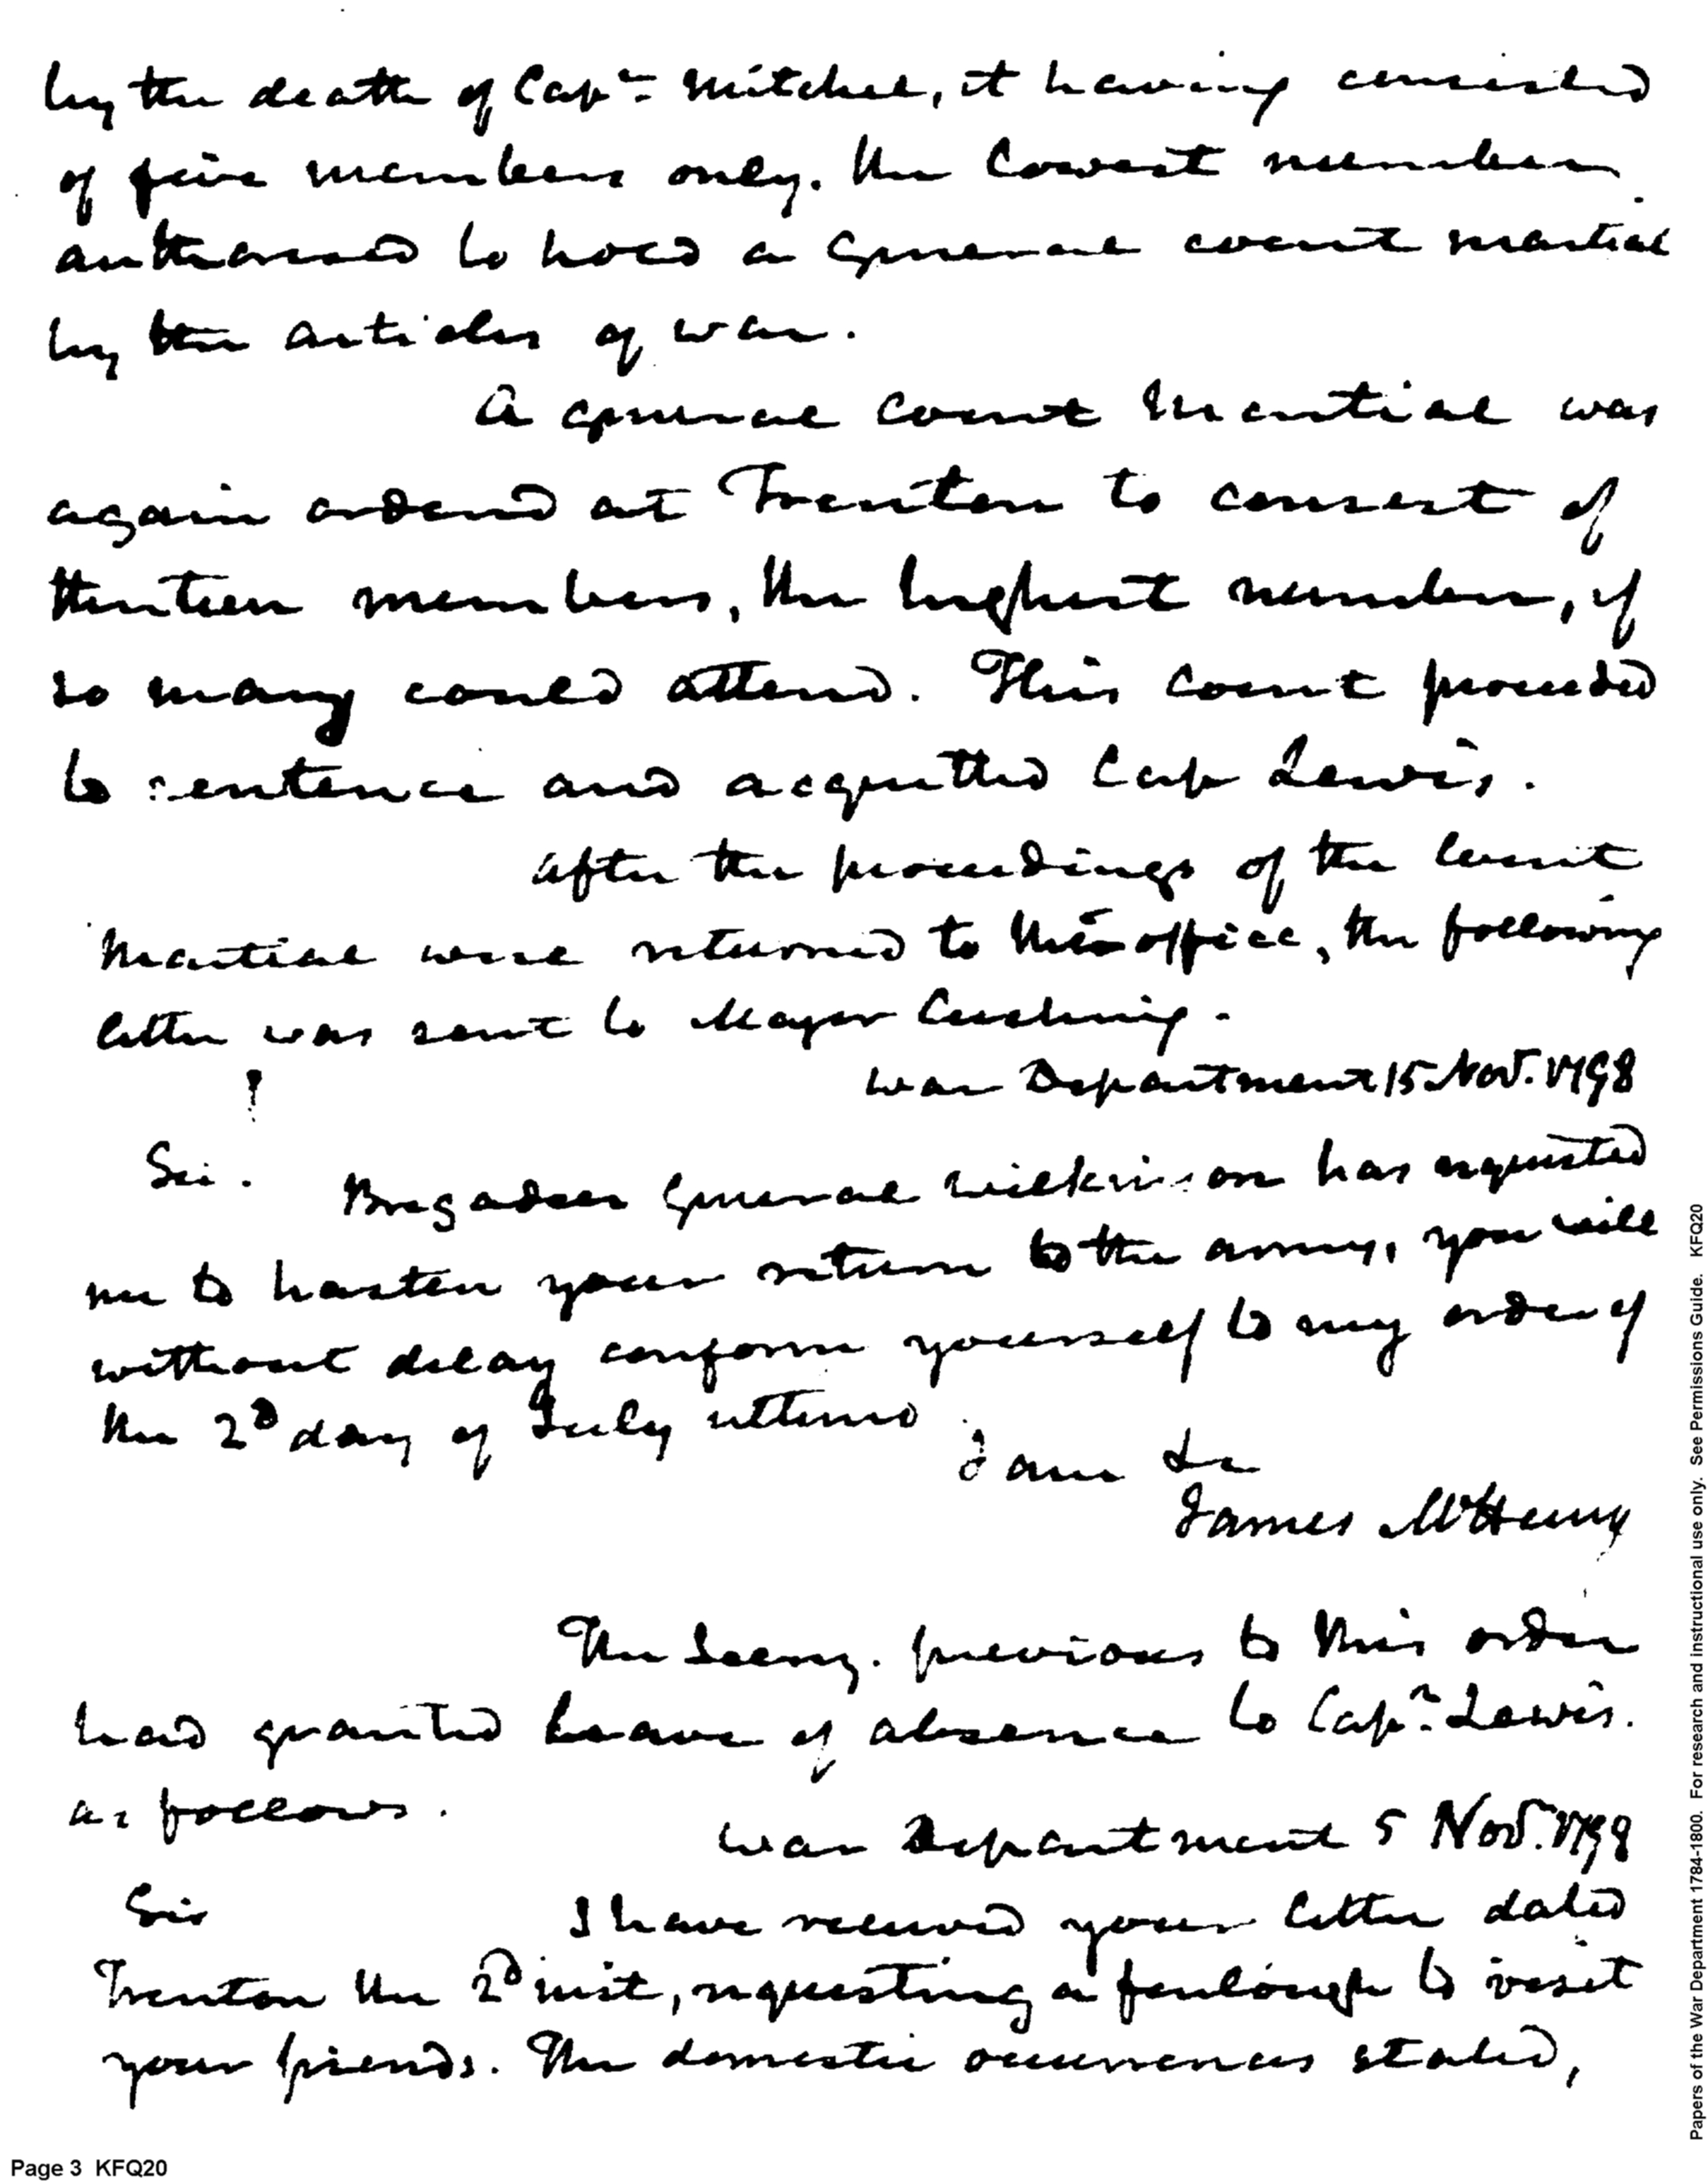 by the death of Capn. Mitchel, it having consisted
of five members only. the lowest number
authorised to hold a general court martial
by the articles of war.
A general court Martial was
again ordered at Trenton to consist of
thirteen members, the highest number, if
so many could attend. This court proceeded
to sentence and acquitted Cap Lewis.
After the proceedings of the Court
Martial were returned to this office, the following
letter was sent to Major Cushing.
War Department 15 Nov. 1798
Sir. Brigadier General Wilkinson has requested
me to hasten your return to the army, you will
without delay conform yourself to my order of
the 2d day of July ultimo.
I am &c
James McHenry
The Secry. previous to this order
had granted leave of absence to Capn. Lewis.
as follows.
War Department 5 Nov. 1798
Sir I have received your letter dated
Trenton the 2d inst, requesting a furlough to visit
your friends. The domestic occurrences stated,
Page 3 KFQ20
Papers of the War Department 1784-1800. For research and instructional use only. See Permissions Guide. KFQ20